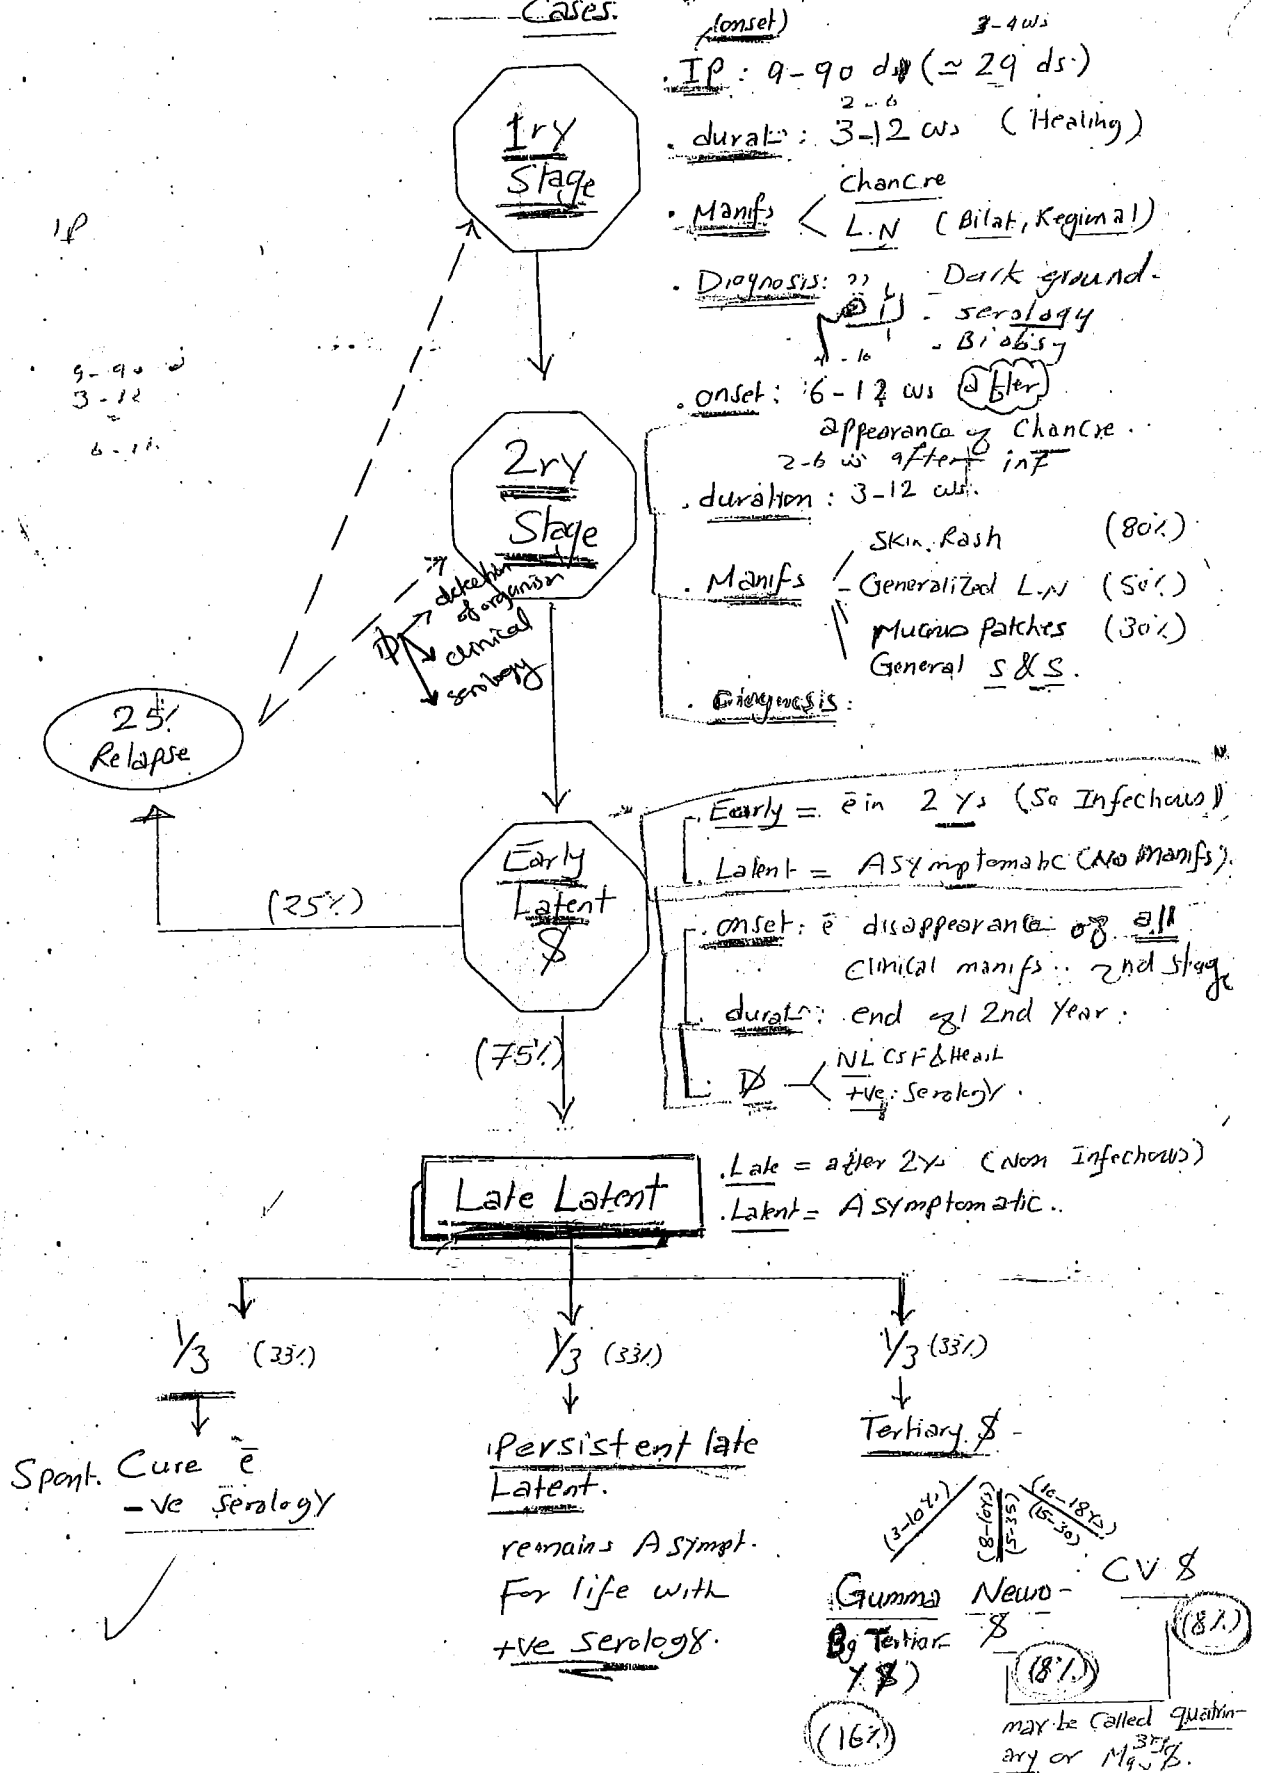 Cases.
(onset)
3-4 ws
. IP : 9-90 ds (≃ 29 ds.)
2-6
1ry
Stage
. durat: : 3-12 ws (Healing)
. Manifs < Chancre
L.N (Bilat, Regional)
IP
. Diagnosis: ,, . Dark ground.
. serology
. Biobsy
9-90
3-12
. onset: 6-12 ws after
appearance of Chancre..
2-6 ws after inf
2ry
Stage
. duration : 3-12 ws.
Skin. Rash (80%)
. Manifs - Generalized L.N (50%)
Mucous Patches (30%)
General S & S.
. Diagnosis:
IP
detection of organism
clinical
serology
25%
Relapse
(25%)
Early
Latent
$
. Early = ē in 2 Ys (So Infectious)
. Latent = Asymptomatic (No Manifs).
. onset: ē disappearance of all
Clinical manifs.. 2nd stage
. durat: : end of 2nd Year.
. D < NL CSF & Heart
+ve. Serology.
(75%)
Late Latent
. Late = after 2Ys (Non Infectious)
. Latent = Asymptomatic..
1/3 (33%)
1/3 (33%)
1/3 (33%)
Spont. Cure ē
-ve Serology
Persistent late
Latent.
remains Asympt.
For life with
+ve Serology.
Tertiary $
(3-10Ys)
(8-10Ys)
(5-35)
(16-18Ys)
(15-30)
Gumma
Bg Tertiar-
Y $)
(16%)
Neuro-
$
(8%)
CV $
(8%)
may be Called quatrin-
ary or